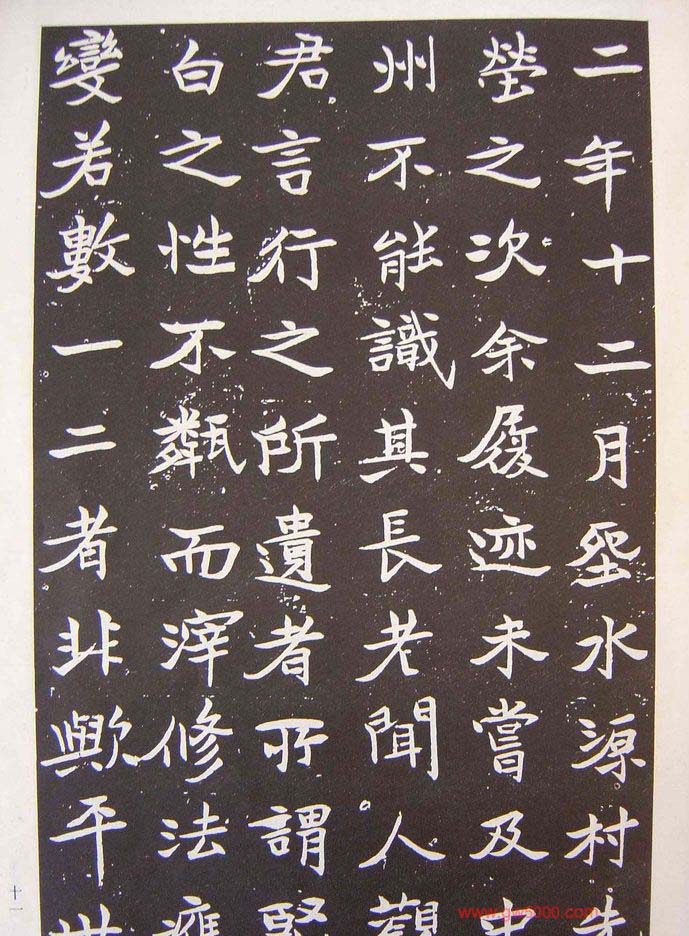 二年十二月水源村先
塋之次余履迹未嘗及中
州不能識其長老聞人觀
君言行之所遺者所謂堅
白之性不甐而滓修法
變若數一二者非歟平世
十一